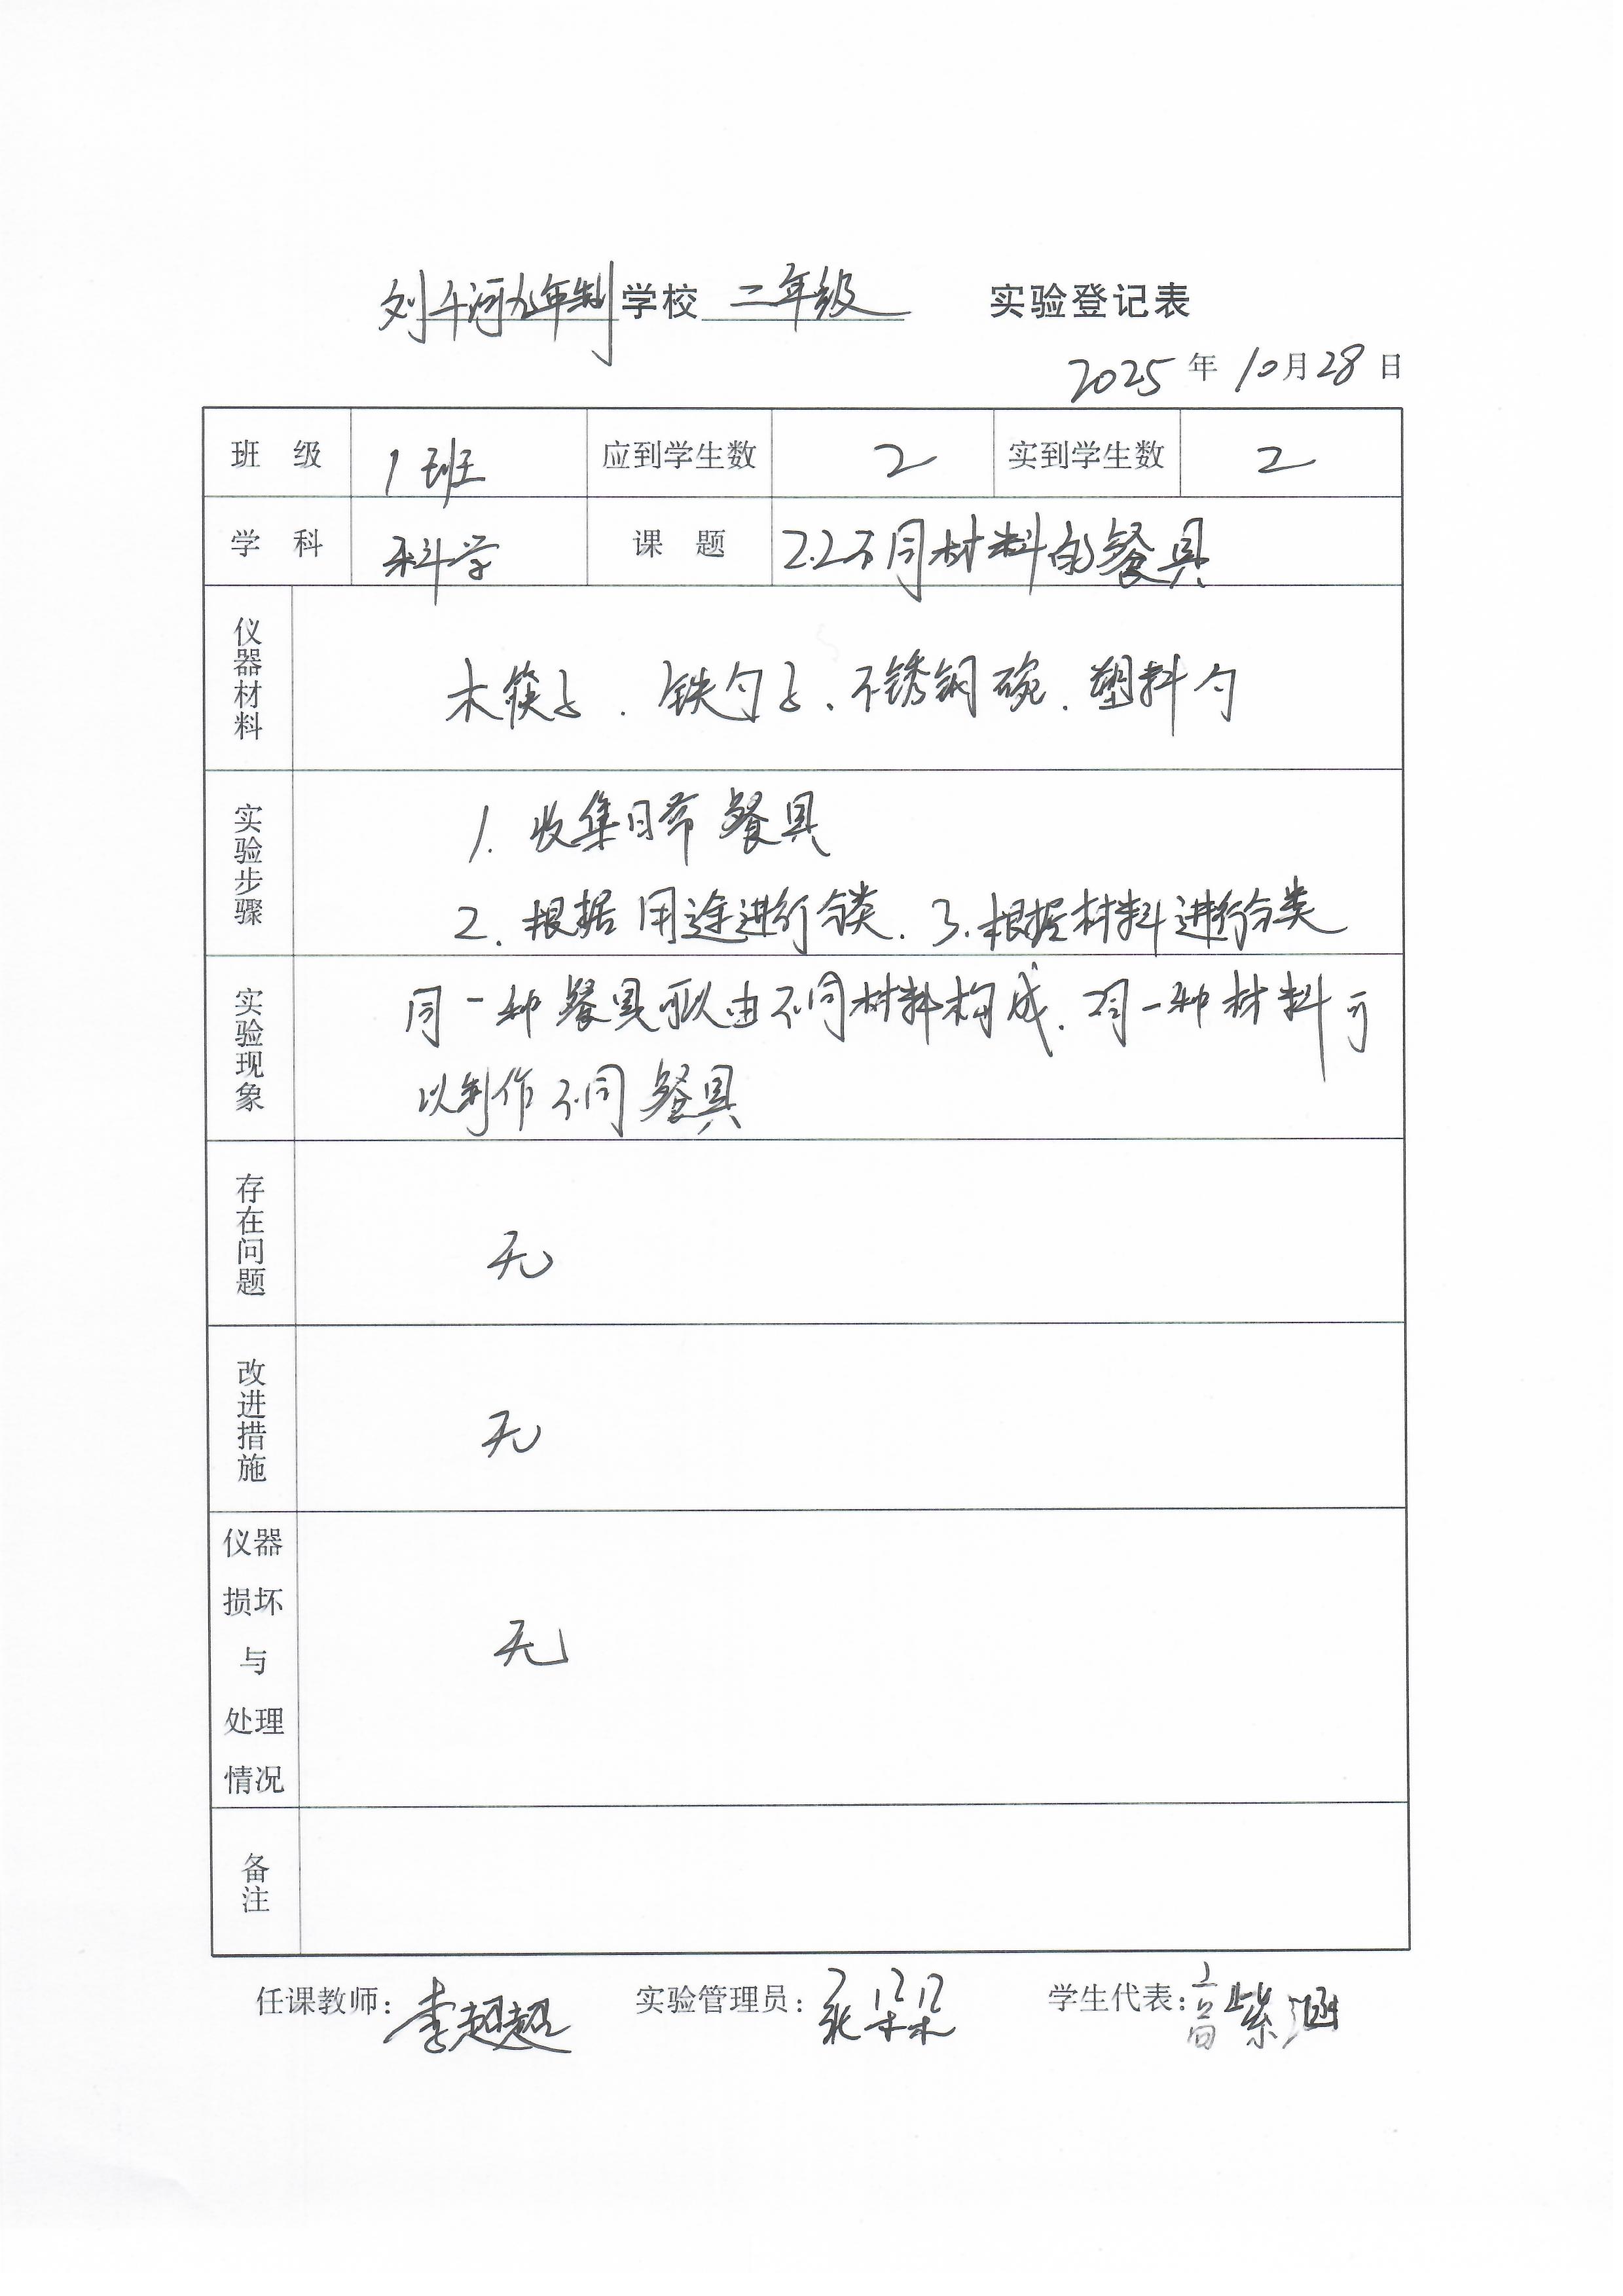 刘午河九年制学校 二年级 实验登记表
2025年10月28日
班级 1班 应到学生数 2 实到学生数 2
学科 科学 课题 2.2不同材料的餐具
仪器材料 木筷子、铁勺子、不锈钢碗、塑料勺
实验步骤 1.收集日常餐具
2.根据用途进行分类.3.根据材料进行分类
实验现象 同一种餐具可以由不同材料构成.同一种材料可
以制作不同餐具
存在问题 无
改进措施 无
仪器损坏与处理情况 无
备注
任课教师:李超超 实验管理员:张 学生代表:高紫涵